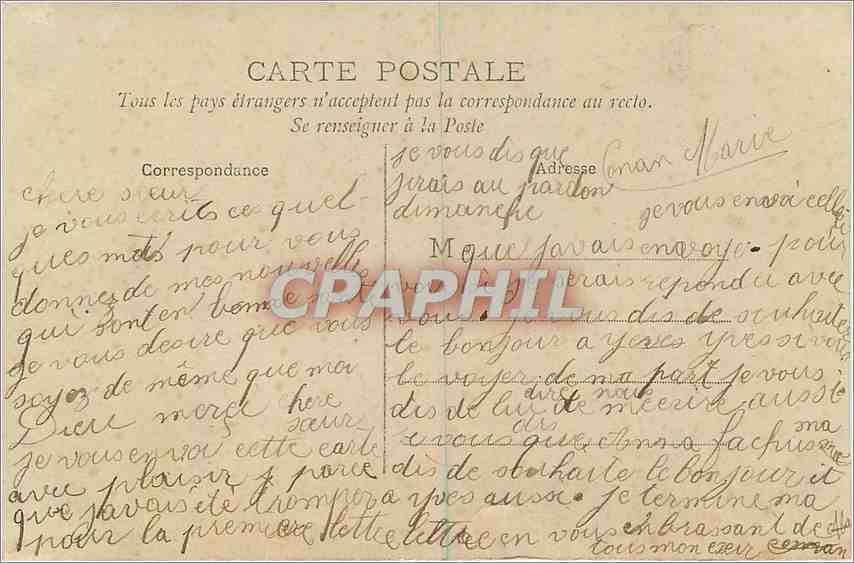 CARTE POSTALE
Tous les pays étrangers n'acceptent pas la correspondance au recto.
Se renseigner à la Poste
Correspondance
chere sœur
je vous écrits ces quel-
ques mots pour vous
donner de mes nouvelle
qui sont en bonne santé
je vous desire que vous
soyez de même que moi
Dieu merci chere
sœur
je vous envoi cette carte
avec plaisir parce
que javais été tromper
pour la premiere lettre
Adresse
Conan Marie
je vous dis que
jirais au pardon
dimanche
je vous envoi celle
M que javais envoyo pour
vous je serais repondu avec
vous dis de souhaiter
le bonjour a Yves si vous
le voyer de ma part je vous
dis de lui dire de mecrire aussi
vous dis que Anna ma
dis de souhaite le bonjour
a yves ausse. je termine ma
lettre en vous enbrassant de
tous mon
CPAPHIL